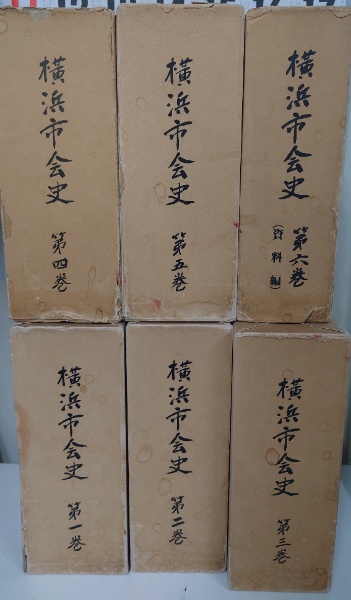 横浜市会史 第四巻
横浜市会史 第五巻
横浜市会史 第六巻
(資料編)
横浜市会史 第一巻
横浜市会史 第二巻
横浜市会史 第三巻